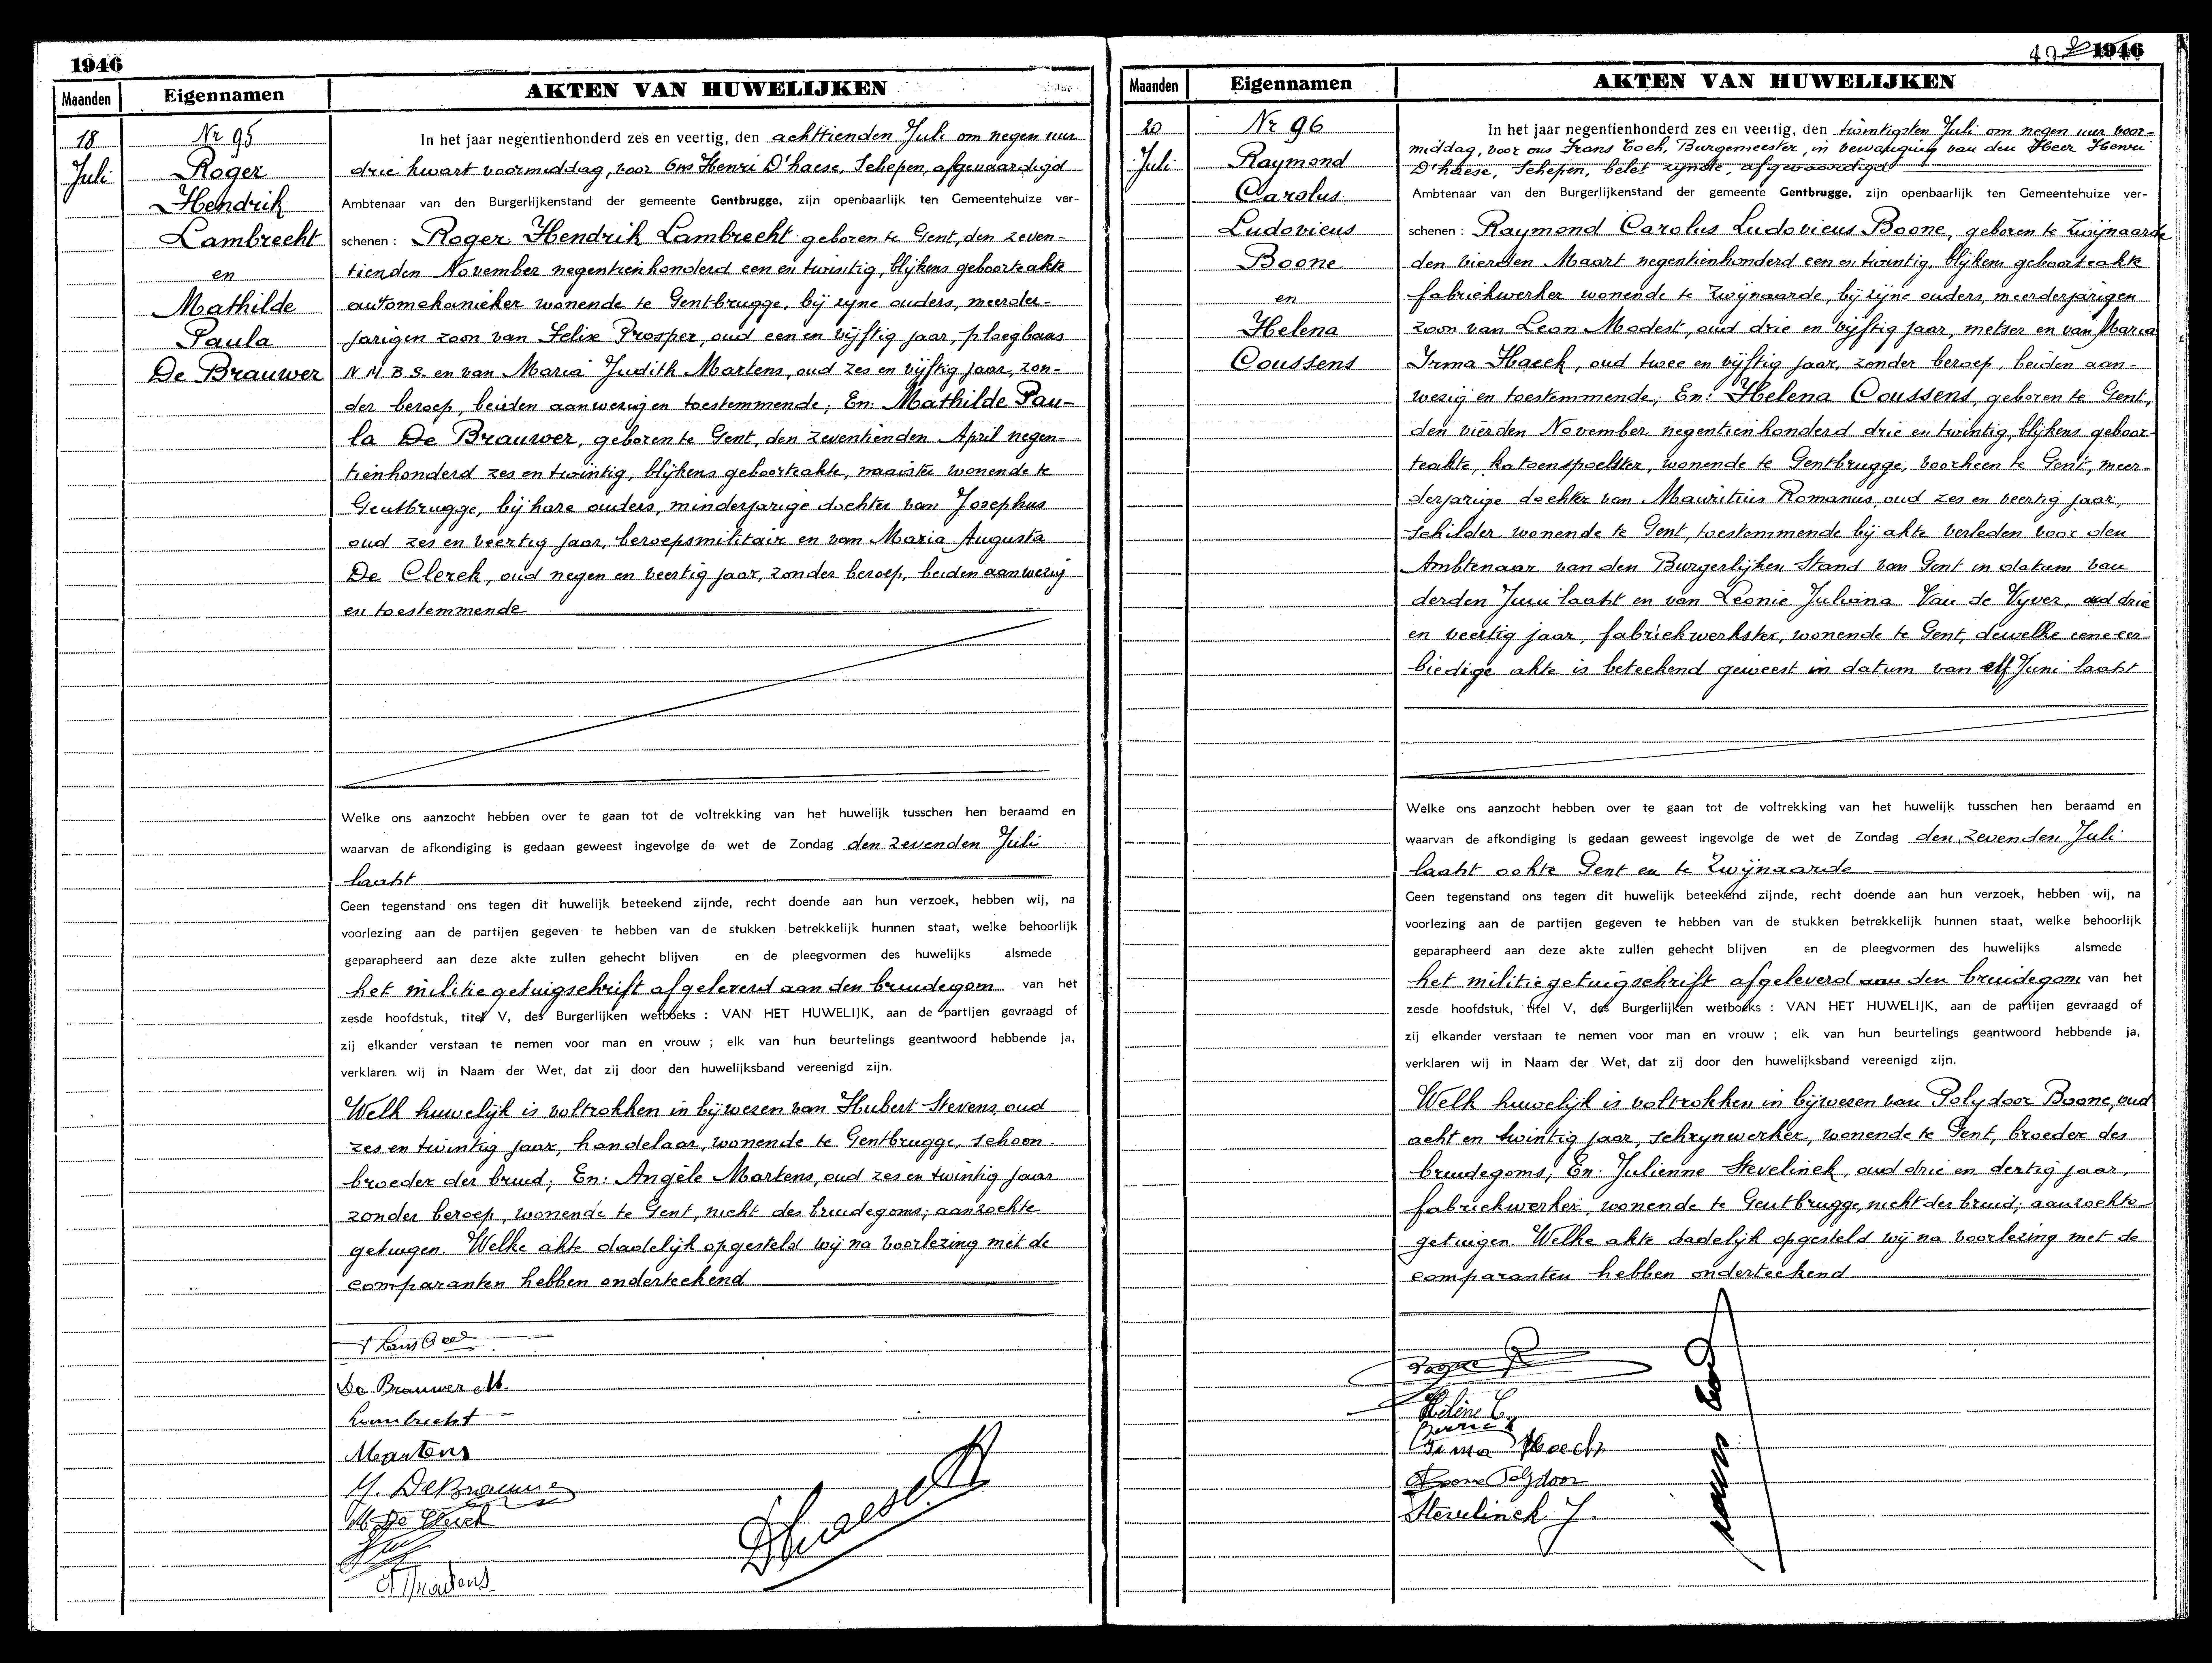 1946
Maanden
Eigennamen
AKTEN VAN HUWELIJKEN
18
Juli
Nr 95
Roger
Hendrik
Lambrecht
en
Mathilde
Paula
De Brauwer
In het jaar negentienhonderd zes en veertig, den achttienden Juli om negen uur
drie kwart voormiddag, voor Ons Henri D'haese, Schepen, afgevaardigd
Ambtenaar van den Burgerlijkenstand der gemeente Gentbrugge, zijn openbaarlijk ten Gemeentehuize ver-
schenen : Roger Hendrik Lambrecht geboren te Gent, den zeven-
tienden November negentienhonderd een en twintig, blijkens geboorteakte
automekanieker wonende te Gentbrugge, bij zijne ouders, meerder-
jarigen zoon van Felix Prosper, oud een en vijftig jaar, ploegbaas
N.M.B.S. en van Maria Judith Martens, oud zes en vijftig jaar, zon-
der beroep, beiden aanwezig en toestemmende; En: Mathilde Pau-
la De Brauwer, geboren te Gent, den zeventienden April negen-
tienhonderd zes en twintig, blijkens geboorteakte, naaister wonende te
Gentbrugge, bij hare ouders, minderjarige dochter van Josephus
oud zes en veertig jaar, beroepsmilitair en van Maria Augusta
De Clerck, oud negen en veertig jaar, zonder beroep, beiden aanwezig
en toestemmende
Welke ons aanzocht hebben over te gaan tot de voltrekking van het huwelijk tusschen hen beraamd en
waarvan de afkondiging is gedaan geweest ingevolge de wet de Zondag den zevenden Juli
laatst
Geen tegenstand ons tegen dit huwelijk beteekend zijnde, recht doende aan hun verzoek, hebben wij, na
voorlezing aan de partijen gegeven te hebben van de stukken betrekkelijk hunnen staat, welke behoorlijk
geparapheerd aan deze akte zullen gehecht blijven en de pleegvormen des huwelijks alsmede
het militiegetuigschrift afgeleverd aan den bruidegom van het
zesde hoofdstuk, titel V, des Burgerlijken wetboeks : VAN HET HUWELIJK, aan de partijen gevraagd of
zij elkander verstaan te nemen voor man en vrouw ; elk van hun beurtelings geantwoord hebbende ja,
verklaren wij in Naam der Wet, dat zij door den huwelijksband vereenigd zijn.
Welk huwelijk is voltrokken in bijwesen van Hubert Stevens, oud
zes en twintig jaar, handelaar, wonende te Gentbrugge, schoon-
broeder der bruid; En: Angèle Martens, oud zes en twintig jaar
zonder beroep, wonende te Gent, nicht des bruidegoms; aanzochte
getuigen. Welke akte dadelijk opgesteld wij na voorlezing met de
comparanten hebben onderteekend
De Brauwer M.
Lambrecht
Martens
De Brauwer
M De Clerck
A Martens
D'haese H
1946
Maanden
Eigennamen
AKTEN VAN HUWELIJKEN
20
Juli
Nr 96
Raymond
Carolus
Ludovicus
Boone
en
Helena
Coussens
In het jaar negentienhonderd zes en veertig, den twintigsten Juli om negen uur voor-
middag, voor ons Frans Coeck, Burgemeester, in vervanging van den Heer Henri
D'haese, Schepen, belet zijnde, afgevaardigd
Ambtenaar van den Burgerlijkenstand der gemeente Gentbrugge, zijn openbaarlijk ten Gemeentehuize ver-
schenen : Raymond Carolus Ludovicus Boone, geboren te Zwijnaarde
den vierden Maart negentienhonderd een en twintig, blijkens geboorteakte
fabriekwerker wonende te Zwijnaarde, bij zijne ouders, meerderjarigen
zoon van Leon Modest, oud drie en vijftig jaar, metser en van Maria
Irma Haeck, oud twee en vijftig jaar, zonder beroep, beiden aan-
wezig en toestemmende; En: Helena Coussens, geboren te Gent,
den vierden November negentienhonderd drie en twintig, blijkens geboor-
teakte, katoenspoelster, wonende te Gentbrugge, voorheen te Gent, meer-
derjarige dochter van Mauritius Romanus, oud zes en veertig jaar,
schilder wonende te Gent, toestemmende bij akte verleden voor den
Ambtenaar van den Burgerlijken Stand van Gent in datum van
derden Juni laatst en van Leonie Juliana Van de Vyver, oud drie
en veertig jaar, fabriekwerkster, wonende te Gent, dewelke eene eer-
biedige akte is beteekend geweest in datum van elf Juni laatst
Welke ons aanzocht hebben over te gaan tot de voltrekking van het huwelijk tusschen hen beraamd en
waarvan de afkondiging is gedaan geweest ingevolge de wet de Zondag den zevenden Juli
laatst ook te Gent en te Zwijnaarde
Geen tegenstand ons tegen dit huwelijk beteekend zijnde, recht doende aan hun verzoek, hebben wij, na
voorlezing aan de partijen gegeven te hebben van de stukken betrekkelijk hunnen staat, welke behoorlijk
geparapheerd aan deze akte zullen gehecht blijven en de pleegvormen des huwelijks alsmede
het militiegetuigschrift afgeleverd aan den bruidegom van het
zesde hoofdstuk, titel V, des Burgerlijken wetboeks : VAN HET HUWELIJK, aan de partijen gevraagd of
zij elkander verstaan te nemen voor man en vrouw ; elk van hun beurtelings geantwoord hebbende ja,
verklaren wij in Naam der Wet, dat zij door den huwelijksband vereenigd zijn.
Welk huwelijk is voltrokken in bijwesen van Polydoor Boone, oud
acht en twintig jaar, schrynwerker, wonende te Gent, broeder des
bruidegoms; En: Julienne Stevelinck, oud drie en dertig jaar,
fabriekwerker, wonende te Gentbrugge, nicht der bruid; aanzochte
getuigen. Welke akte dadelijk opgesteld wij na voorlezing met de
comparanten hebben onderteekend
Hélène C.
Irma Haeck
Boone Polydoor
Stevelinck J.